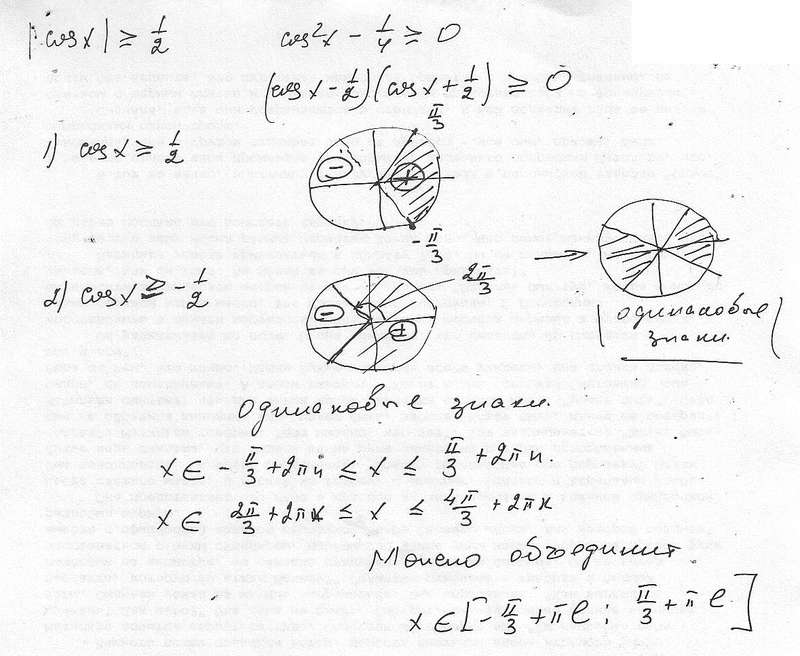 |cos x| ≥ 1/2
cos²x - 1/4 ≥ 0
(cos x - 1/2)(cos x + 1/2) ≥ 0
1) cos x ≥ 1/2
π/3
-
+
-π/3
2) cos x ≥ -1/2
2π/3
-
+
одинаковые
знаки.
одинаковые знаки.
x ∈ -π/3 + 2πn ≤ x ≤ π/3 + 2πn.
x ∈ 2π/3 + 2πk ≤ x ≤ 4π/3 + 2πk
Можно объединит
x ∈ [-π/3 + πl; π/3 + πl]